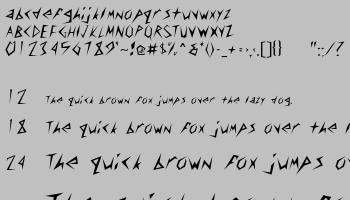 abcdefghijklmnopqrstuvwxyz
ABCDEFGHIJKLMNOPQRSTUVWXYZ
0123456789~!@#$%^&*()-_+=[]{} "":;/?
12 The quick brown fox jumps over the lazy dog.
18 The quick brown fox jumps over the
24 The quick brown fox jumps o